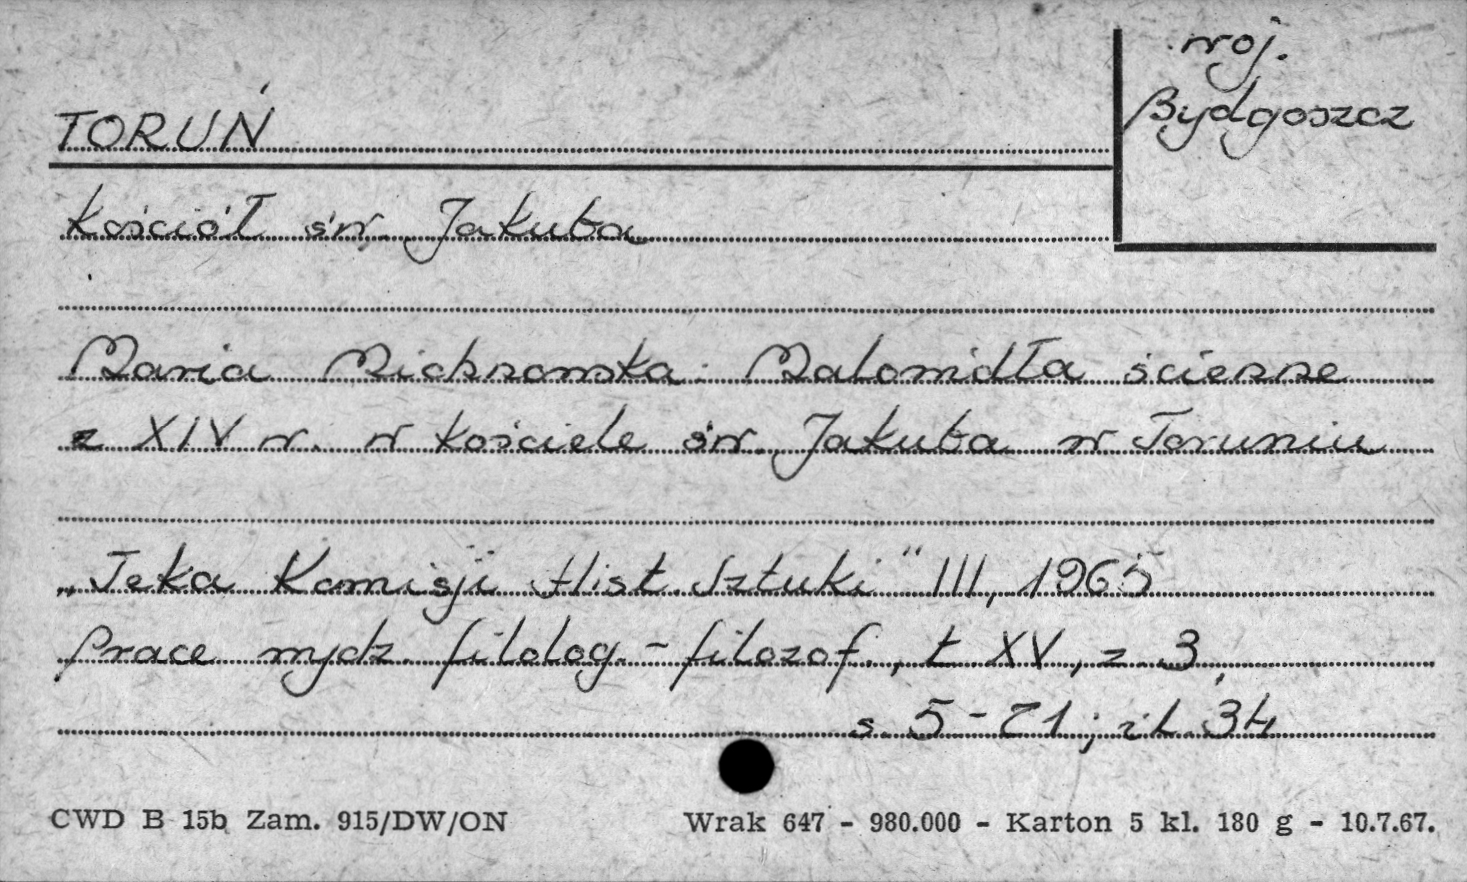 woj.
Bydgoszcz
TORUŃ
Kościół św. Jakuba
Maria Michnowska: Malowidła ścienne
z XIV w. w kościele św. Jakuba w Toruniu
„Teka Komisji Hist. Sztuki" III, 1965
Prace wydz. filolog.-filozof., t XV, z. 3,
s. 5-71; il. 34
CWD B 15b Zam. 915/DW/ON
Wrak 647 - 980.000 - Karton 5 kl. 180 g - 10.7.67.